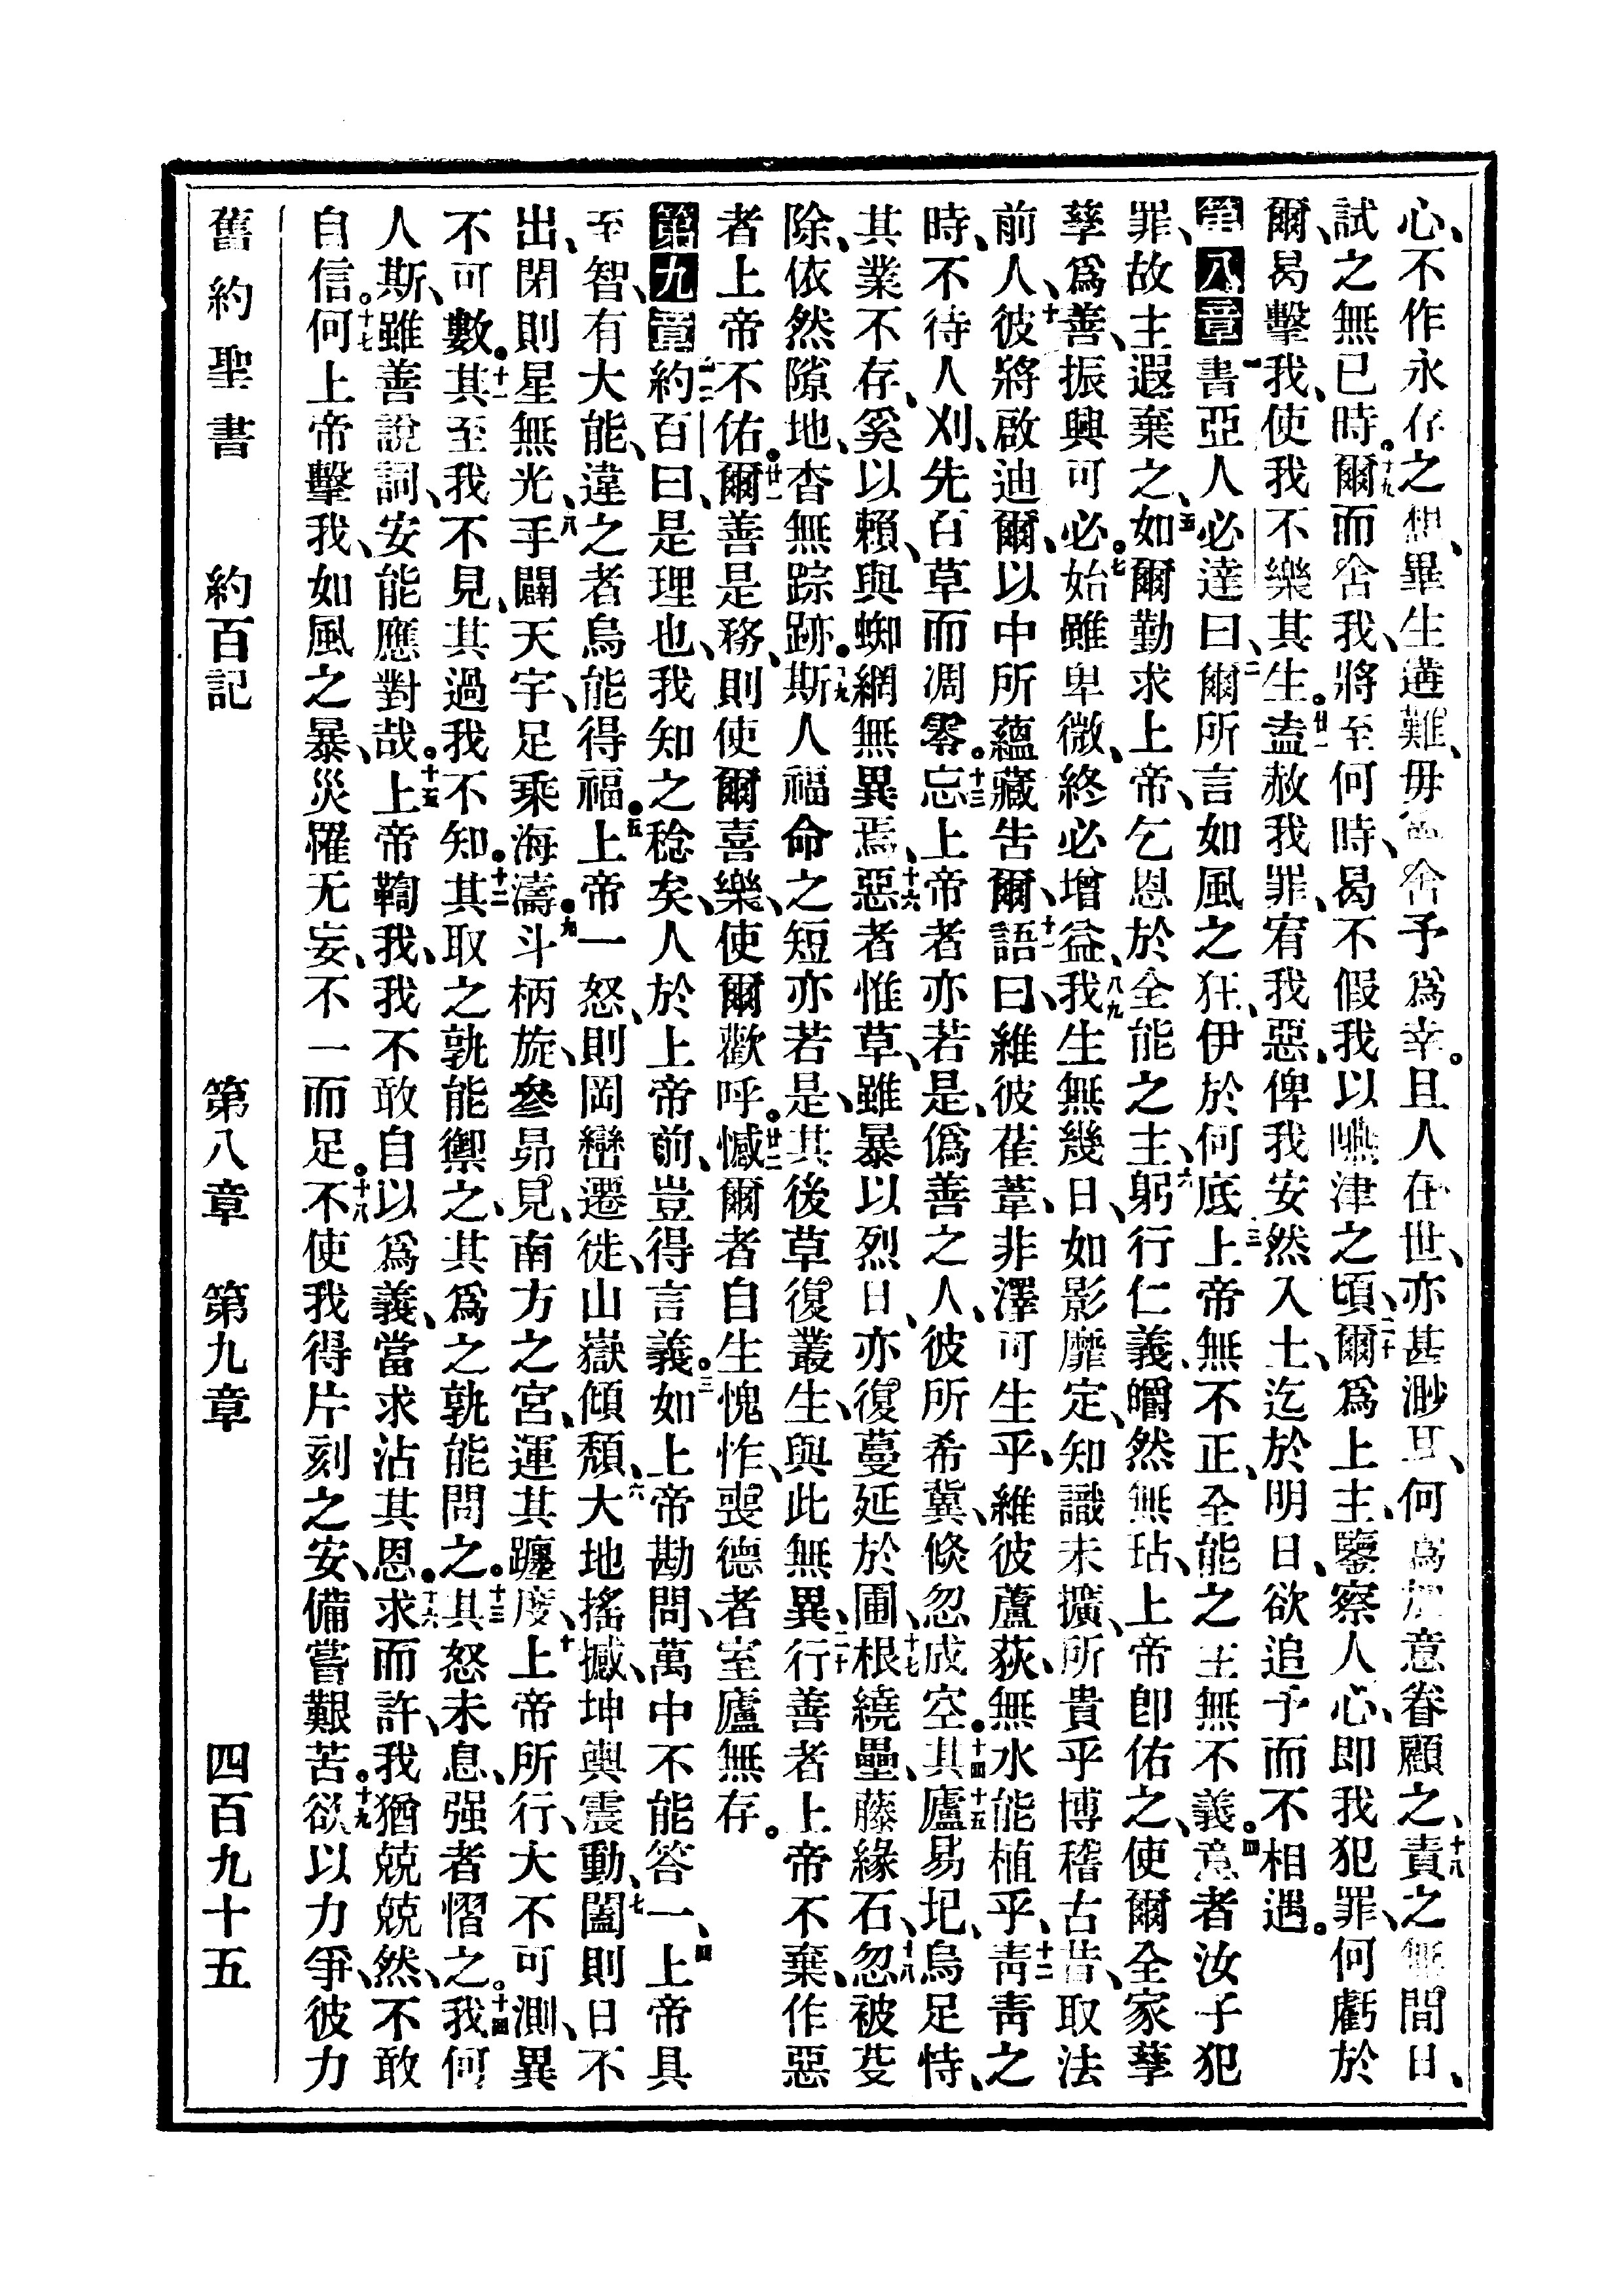 心、不作永存之想、畢生遘難、毋舍予爲幸。且人在世、亦甚渺耳、何爲加意眷顧之、十八責之無間日、
試之無已時。十九爾而舍我、將至何時、曷不假我以嚥津之頃、二十爾爲上主、鑒察人心、即我犯罪、何虧於
爾、曷擊我、使我不樂其生。廿一盍赦我罪、宥我惡、俾我安然入土、迄於明日、欲追予而不相遇。
第八章 一書亞人必達曰、二爾所言如風之狂、伊於何底、三上帝無不正、全能之主無不義。四意者汝子犯
罪、故主遐棄之、五如爾勤求上帝、乞恩於全能之主、六躬行仁義、皭然無玷、上帝卽佑之、使爾全家孳
孳爲善、振興可必。七始雖卑微、終必增益、八九我生無幾日、如影靡定、知識未擴、所貴乎博稽古昔、取法
前人、十彼將啟迪爾、以中所蘊藏吿爾、十一語曰、維彼萑葦、非澤可生乎、維彼蘆荻、無水能植乎、十二靑靑之
時、不待人刈、先百草而凋零。十三忘上帝者亦若是、僞善之人、彼所希冀、倐忽成空。十四其廬易圮、十五烏足恃、
其業不存、奚以賴、與蜘網無異焉、十六惡者惟草、雖暴以烈日、亦復蔓延於圃、十七根繞壘、藤緣石、十八忽被芟
除、依然隙地、杳無踪跡。十九斯人福命之短亦若是、其後草復叢生、與此無異、二十行善者上帝不棄、作惡
者上帝不佑。廿一爾善是務、則使爾喜樂、使爾歡呼。廿二憾爾者自生愧怍、喪德者室廬無存。
第九章 一二約百曰、是理也、我知之稔矣、人於上帝前、豈得言義。三如上帝勘問、萬中不能答一、四上帝具
至智、有大能、違之者烏能得福。五上帝一怒、則岡巒遷徙、山嶽傾頹、六大地搖撼、坤輿震動、七闔則日不
出、閉則星無光、八手闢天宇、足乘海濤。九斗柄旋、參昴見、南方之宮、運其躔度、十上帝所行、大不可測、異
不可數。十一其至我不見、其過我不知。十二其取之孰能禦之、其爲之孰能問之。十三其怒未息、强者慴之。十四我何
人斯、雖善說詞、安能應對哉。十五上帝鞫我、我不敢自以爲義、當求沾其恩。十六求而許、我猶兢兢然、不敢
自信。十七何上帝擊我、如風之暴、災罹无妄、不一而足。十八不使我得片刻之安、備嘗艱苦。十九欲以力爭、彼力
舊約聖書 約百記 第八章 第九章 四百九十五